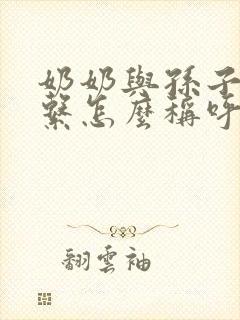 奶奶與孫子
繫怎麼稱呼
翻雲袖